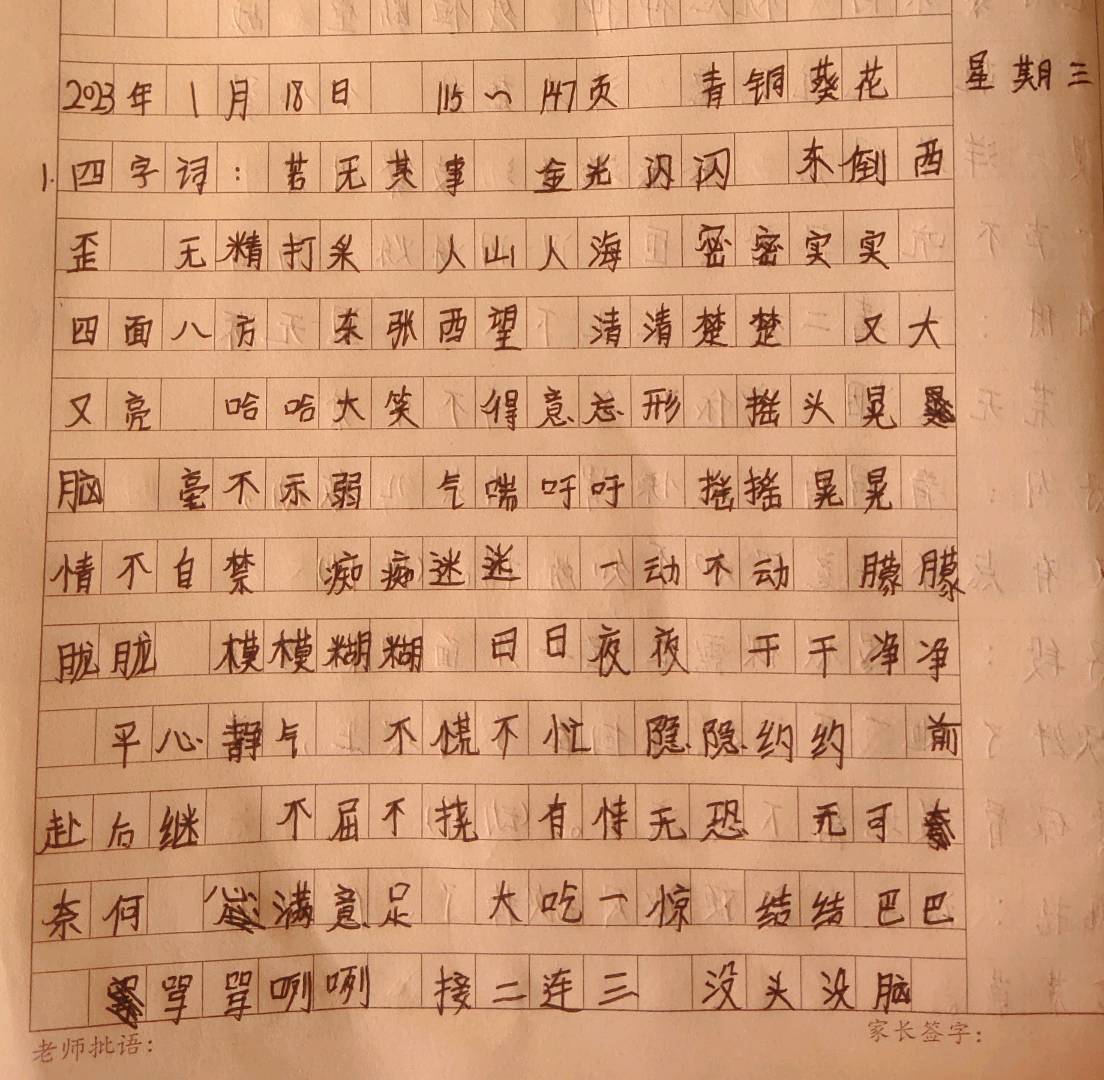 2023年1月18日 115~147页 青铜葵花 星期三
1.四字词:若无其事 金光闪闪 东倒西
歪 无精打采 人山人海 密密实实
四面八方 东张西望 清清楚楚 又大
又亮 哈哈大笑 得意忘形 摇头晃
脑 毫不示弱 气喘吁吁 摇摇晃晃
情不自禁 痴痴迷迷 一动不动 朦朦
胧胧 模模糊糊 日日夜夜 干干净净
平心静气 不慌不忙 隐隐约约 前
赴后继 不屈不挠 有恃无恐 无可
奈何 心满意足 大吃一惊 结结巴巴
骂骂咧咧 接二连三 没头没脑
老师批语: 家长签字: